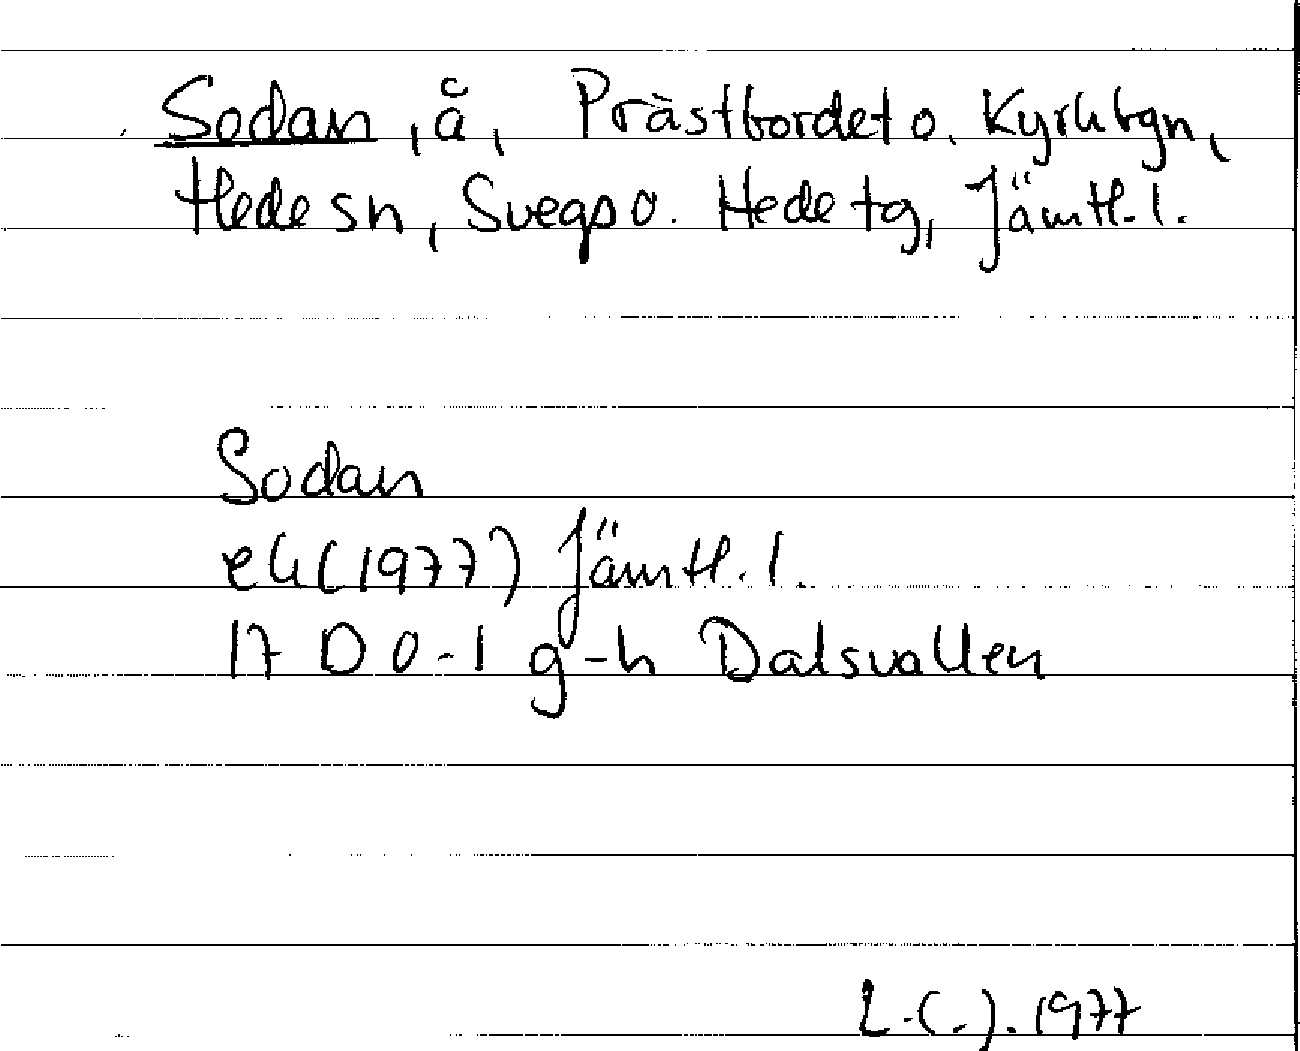 Sodan, å, Prästbordet o. Kyrkbyn,
Hede sn, Svegs o. Hede tg, Jämtl. l.
Sodan
ek (1977) Jämtl. l.
17 D 0-1 g-h Dalsvallen
L.C.J. 1977